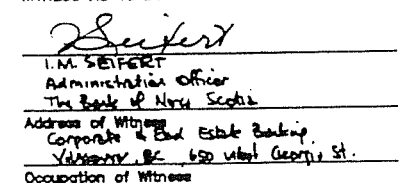 Seifert
I.M. SEIFERT
Administration Officer
The Bank of Nova Scotia
Address of Witness
Corporate & Real Estate Banking,
Vancouver, BC, 650 West Georgia St.
Occupation of Witness